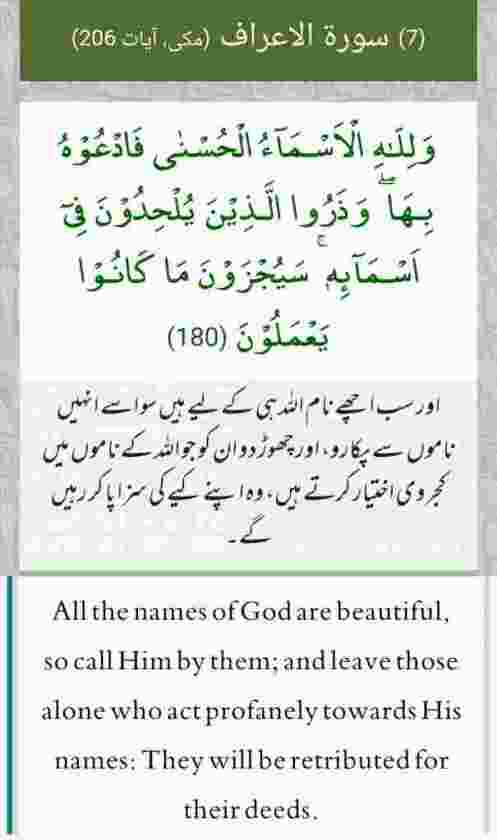 (7) سورة الاعراف (مکی، آیات 206)
وَلِلّٰهِ الْاَسْـمَآءُ الْحُسْنٰى فَادْعُوْهُ
بِـهَا ۖ وَذَرُوا الَّـذِيْنَ يُلْحِدُوْنَ فِىٓ
اَسْـمَآئِهٖ ۚ سَيُجْزَوْنَ مَا كَانُـوْا
يَعْمَلُوْنَ (180)
اور سب اچھے نام اللہ ہی کے لیے ہیں سو اسے انہیں
ناموں سے پکارو، اور چھوڑ دو ان کو جو اللہ کے ناموں میں
کجروی اختیار کرتے ہیں، وہ اپنے کیے کی سزا پا کر رہیں
گے۔
All the names of God are beautiful,
so call Him by them; and leave those
alone who act profanely towards His
names: They will be retributed for
their deeds.